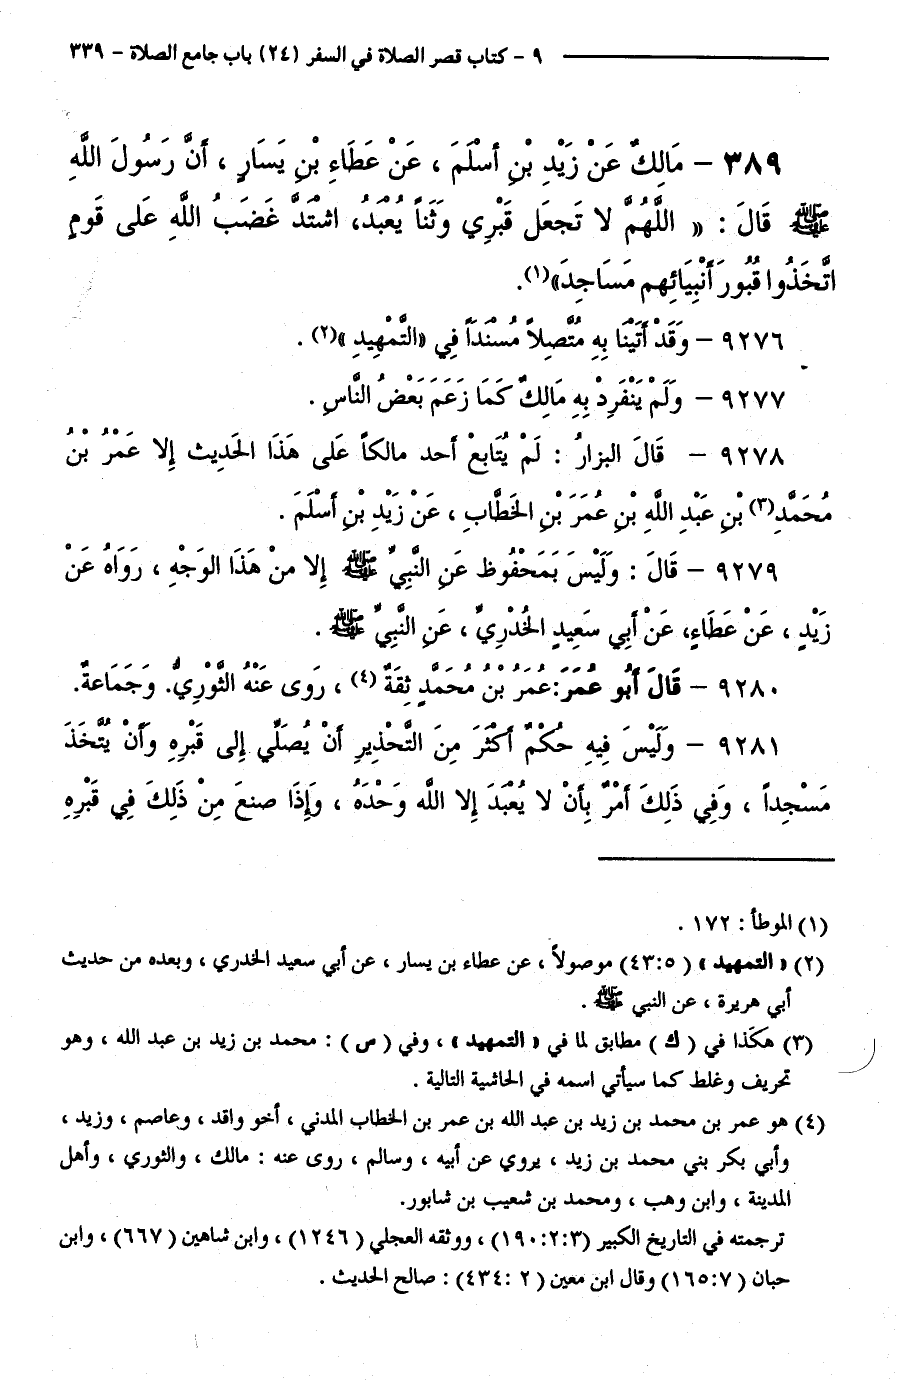 ٩ - كتاب قصر الصلاة في السفر (٢٤) باب جامع الصلاة - ٣٣٩
٣٨٩ - مَالِكٌ عَنْ زَيْدِ بْنِ أَسْلَمَ ، عَنْ عَطَاءِ بْنِ يَسَارٍ ، أَنَّ رَسُولَ اللَّهِ
ﷺ قَالَ : « اللَّهُمَّ لا تَجعَل قَبْرِي وَثَناً يُعْبَدُ، اشْتَدَّ غَضَبُ اللَّهِ عَلى قَومٍ
اتَّخَذُوا قُبُورَ أَنْبِيَائِهم مَسَاجِدَ»(١).
٩٢٧٦ - وَقَدْ أَتَيْنَا بِهِ مُتَّصِلاً مُسْنَدَاً فِي «التَّمْهِيدِ »(٢) .
٩٢٧٧ - وَلَمْ يَنْفَرِدْ بِهِ مَالِكٌ كَمَا زَعَمَ بَعْضُ النَّاسِ .
٩٢٧٨ - قَالَ البزارُ : لَمْ يُتَابعْ أحد مالكاً عَلى هَذَا الحَدِيث إلا عَمْرُ بْنُ
مُحَمَّدِ(٣) بْنِ عَبْدِ اللَّهِ بْنِ عُمَرَ بْنِ الخَطَّابِ ، عَنْ زَيْدِ بْنِ أَسْلَمَ .
٩٢٧٩ - قَالَ : وَلَيْسَ بَمَحْفُوظ عَنِ النَّبِيِّ ﷺ إلا منْ هَذَا الوَجْهِ ، رَوَاهُ عَنْ
زَيْدٍ ، عَنْ عَطَاءٍ، عَنْ أَبِي سَعِيدٍ الخُدْرِيِّ ، عَنِ النَّبِيِّ ﷺ .
٩٢٨٠ - قَالَ أَبُو عُمَرَ:عُمَرُ بْنُ مُحَمَّدٍ ثِقَةٌ (٤) ، رَوى عَنْهُ الثَّوْرِيُّ. وَجَمَاعَةٌ.
٩٢٨١ - وَلَيْسَ فِيهِ حُكْمٌ أَكْثَرَ مِنَ التَّحْذِيرِ أَنْ يُصَلَّي إِلى قَبْرِهِ وَأَنْ يُتَّخَذَ
مَسْجِداً ، وَفِي ذَلِكَ أَمْرٌ بِأَنْ لا يُعْبَدَ إلا اللَّه وَحْدَهُ ، وَإِذَا صنعَ مِنْ ذَلِكَ فِي قَبْرِهِ
(١) الموطأ : ١٧٢ .
(٢) « التمهيد » ( ٤٣:٥) موصولاً ، عن عطاء بن يسار ، عن أبي سعيد الخدري ، وبعده من حديث
أبي هريرة ، عن النبي ﷺ .
(٣) هكذا في ( ك ) مطابق لما في « التمهيد » ، وفي ( س ) : محمد بن زيد بن عبد الله ، وهو
تحريف وغلط كما سيأتي اسمه في الحاشية التالية .
(٤) هو عمر بن محمد بن زيد بن عبد الله بن عمر بن الخطاب المدني ، أخو واقد ، وعاصم ، وزيد ،
وأبي بكر بني محمد بن زيد ، يروي عن أبيه ، وسالم ، روى عنه : مالك ، والثوري ، وأهل
المدينة ، وابن وهب ، ومحمد بن شعيب بن شابور.
ترجمته في التاريخ الكبير (١٩٠:٢:٣) ، ووثقه العجلي (١٢٤٦) ، وابن شاهين (٦٦٧) ، وابن
حبان (١٦٥:٧) وقال ابن معين (٢ :٤٣٤) : صالح الحديث .